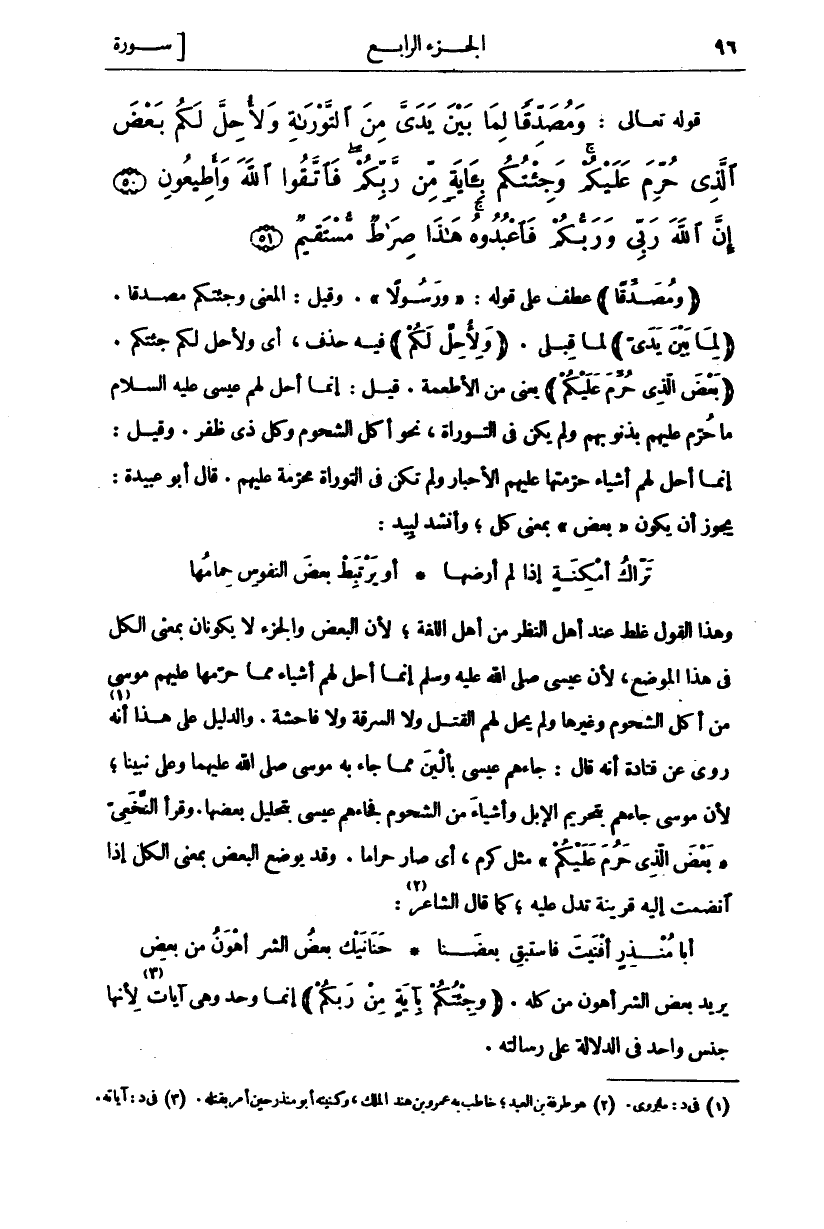 ٩٦ الجــزء الرابــع [ ســورة
قوله تعـالى : وَمُصَدِّقًا لِمَا بَيْنَ يَدَىَّ مِنَ ٱلتَّوْرَىٰةِ وَلِأُحِلَّ لَكُم بَعْضَ
ٱلَّذِى حُرِّمَ عَلَيْكُمْ ۚ وَجِئْتُكُم بِـَٔايَةٍ مِّن رَّبِّكُمْ ۖ فَٱتَّقُوا ٱللَّهَ وَأَطِيعُونِ ۝٥٠
إِنَّ ٱللَّهَ رَبِّى وَرَبُّكُمْ فَٱعْبُدُوهُ ۗ هَٰذَا صِرَٰطٌ مُّسْتَقِيمٌ ۝٥١
﴿ ومُصَــدِّقًا ﴾ عطف على قوله : « ورَسُولًا » . وقيل : المعنى وجئتكم مصـدقا .
﴿ لِمَــا بَيْنَ يَدَىَّ ﴾ لمـا قبـلى . ﴿ وَلِأُحِلَّ لَكُمْ ﴾ فيـه حذف ، أى ولأحل لكم جئتكم .
﴿ بَعْضَ الَّذِى حُرِّمَ عَلَيْكُمْ ﴾ يعنى من الأطعمة . قيـل : إنمـا أحل لهم عيسى عليه السـلام
ما حُرّم عليهم بذنوبهم ولم يكن فى التـوراة ، نحو أكل الشحوم وكل ذى ظفر . وقيـل :
إنمـا أحل لهم أشياء حرّمتها عليهم الأحبار ولم تكن فى التوراة محرّمة عليهم . قال أبو عبيدة :
يجوز أن يكون « بعض » بمعنى كل ؛ وأنشد لبيد :
تَرّاكُ أمْكِنَـةٍ إذا لم أرضهـا * أو يَرْتَبِطْ بعضَ النفوسِ حِمامُها
وهذا القول غلط عند أهل النظر من أهل اللغة ؛ لأن البعض والجزء لا يكونان بمعنى الكل
فى هذا الموضع، لأن عيسى صلى الله عليه وسلم إنمـا أحل لهم أشياء ممـا حرّمها عليهم موسى
من أكل الشحوم وغيرها ولم يحل لهم القتـل ولا السرقة ولا فاحشة . والدليل على هـذا أنه (١)
روى عن قتادة أنه قال : جاءهم عيسى بألْينَ ممـا جاء به موسى صلى الله عليهما وعلى نبينا ؛
لأن موسى جاءهم بتحريم الإبل وأشياءَ من الشحوم فجاءهم عيسى بتحليل بعضها. وقرأ النَّخَعِىّ
« بَعْضَ الَّذِى حَرُمَ عَلَيْكُمْ » مثل كرم ، أى صار حراما . وقد يوضع البعض بمعنى الكل إذا
انضمت إليه قرينة تدل عليه ؛ كما قال الشاعر (٢) :
أبا مُنْــذِرٍ أفْنَيْتَ فاستبقِ بعضَــنا * حَنَانَيْك بعضُ الشر أهْوَنُ من بعضِ
يريد بعض الشر أهون من كله . ﴿ وجِئْتُكُمْ بِآيَةٍ مِنْ رَبِّكُمْ ﴾ إنمـا وحد وهى آيات (٣) لأنها
جنس واحد فى الدلالة على رسالته .
(١) فى د : ما يروى . (٢) هو طرفة بن العبد ؛ خاطب به عمرو بن هند الملك ، وكنيته أبو منذر حين أمر بقتله . (٣) فى د : آياته .